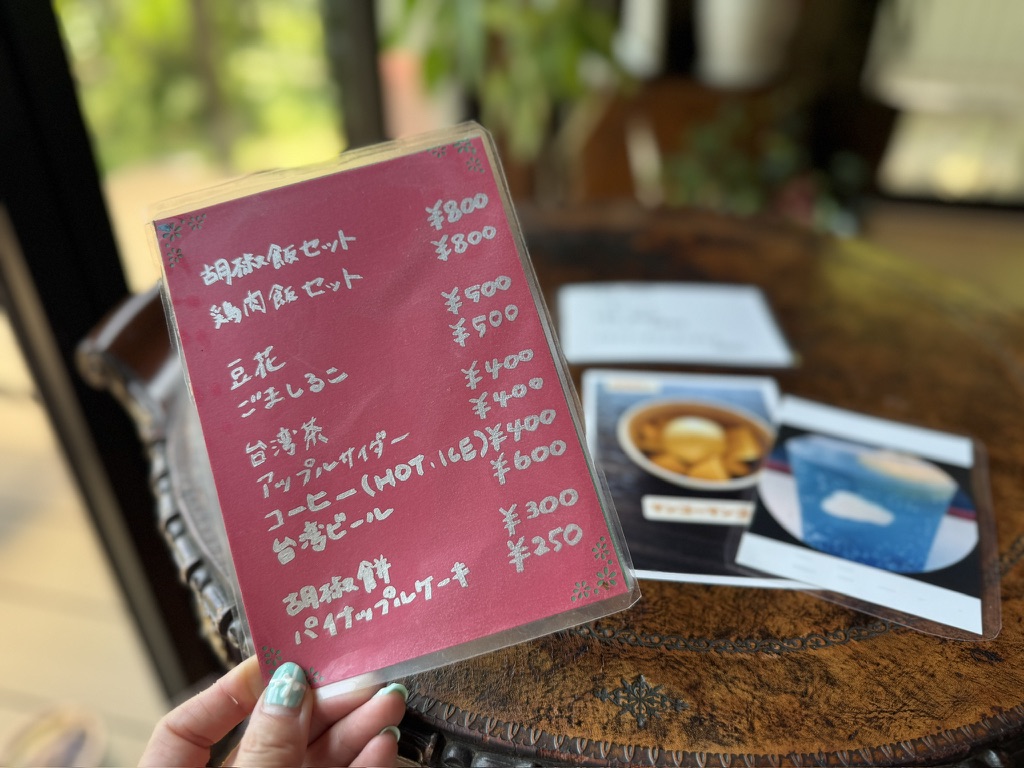 胡椒飯セット ¥800
鶏肉飯セット ¥800
豆花 ¥500
ごましるこ ¥500
台湾茶 ¥400
アップルサイダー ¥400
コーヒー(HOT・ICE) ¥400
台湾ビール ¥600
胡椒餅 ¥300
パイナップルケーキ ¥250